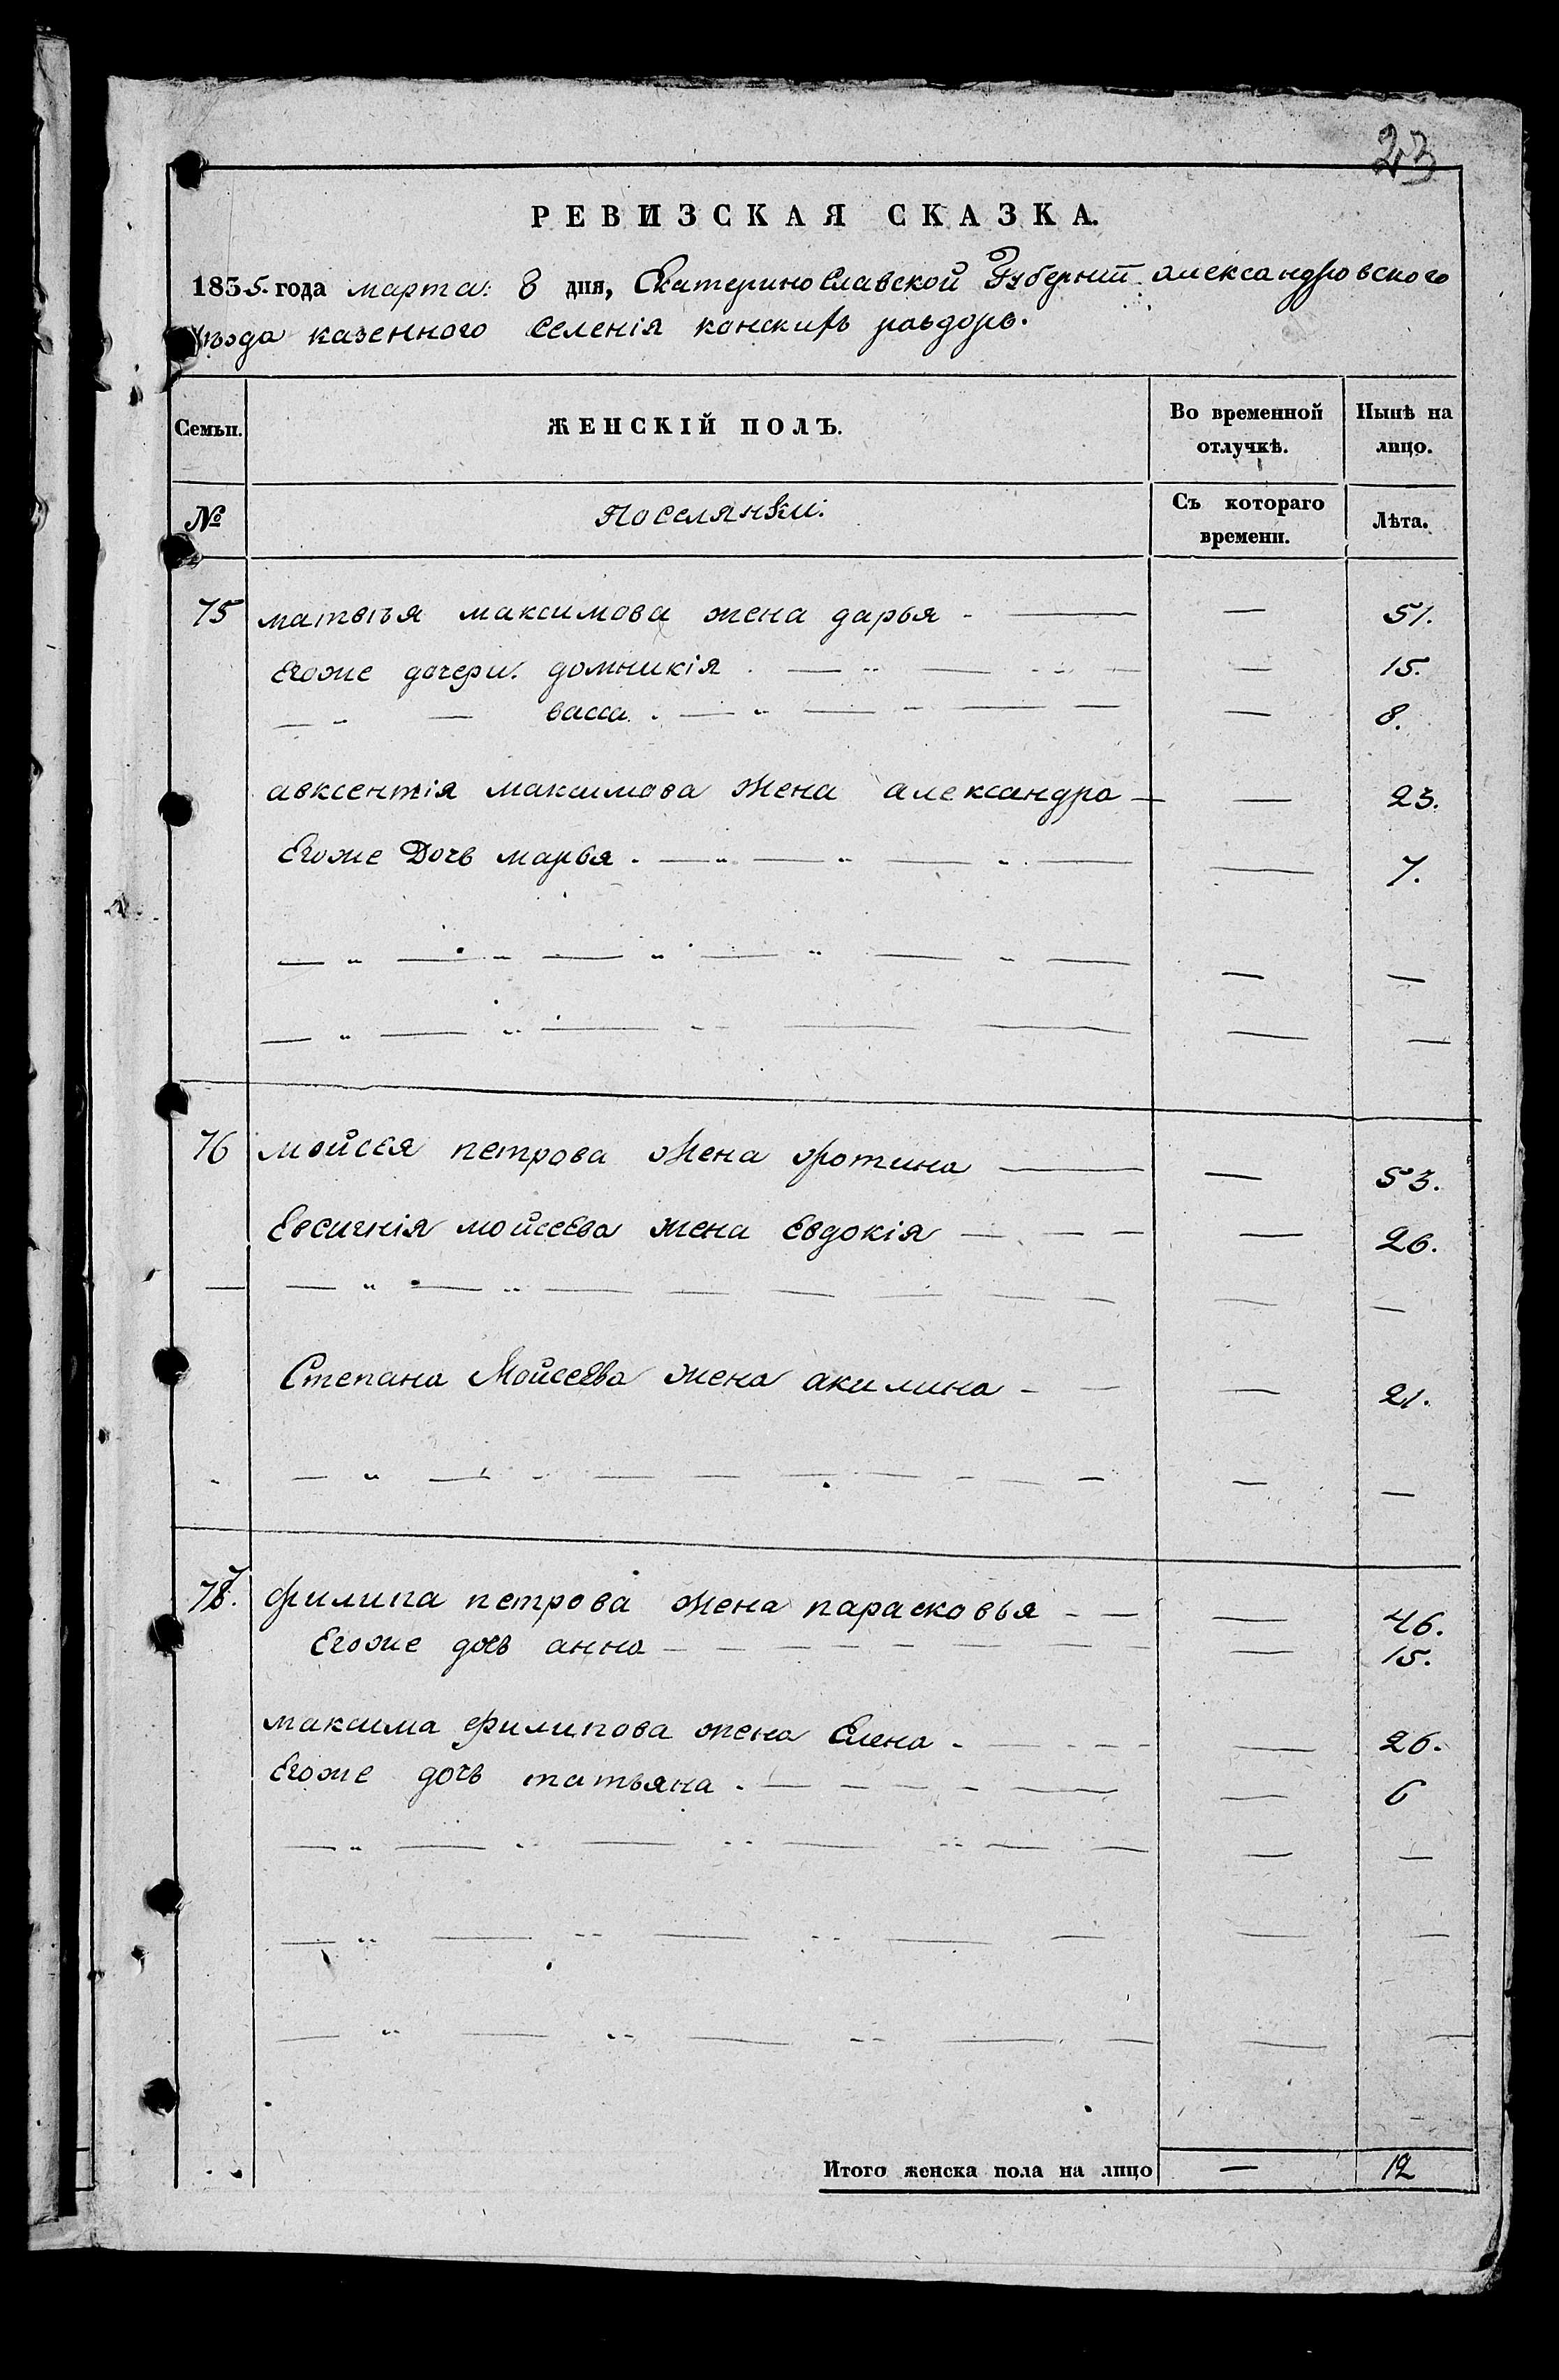 23
РЕВИЗСКАЯ СКАЗКА.
1835. года марта: 8 дня, Екатеринославской Губерніи александровского
уѣзда казенного селенія конскихъ раздоръ.
Семьи. ЖЕНСКІЙ ПОЛЪ. Во временной отлучкѣ. Нынѣ на лицо.
№ Поселянки. Съ котораго времени. Лѣта.
75 матвѣя максимова жена дарья - — — 51.
Егоже дочери: домникія — — 15.
— — васса. — — 8.
авксентія максимова жена александра — — 23.
Егоже Дочь марья. — — 7.
76 мойсея петрова жена фотина — — 53.
Евсигнія мойсеева жена Евдокія — — 26.
Степана Мойсеева жена акилина - — — 21.
77. филипа петрова жена парасковья - — — 46.
Егоже дочь анна — — 15.
максима филипова жена Елена - — — 26.
Егоже дочь татьяна. — — 6
Итого женска пола на лицо — 12